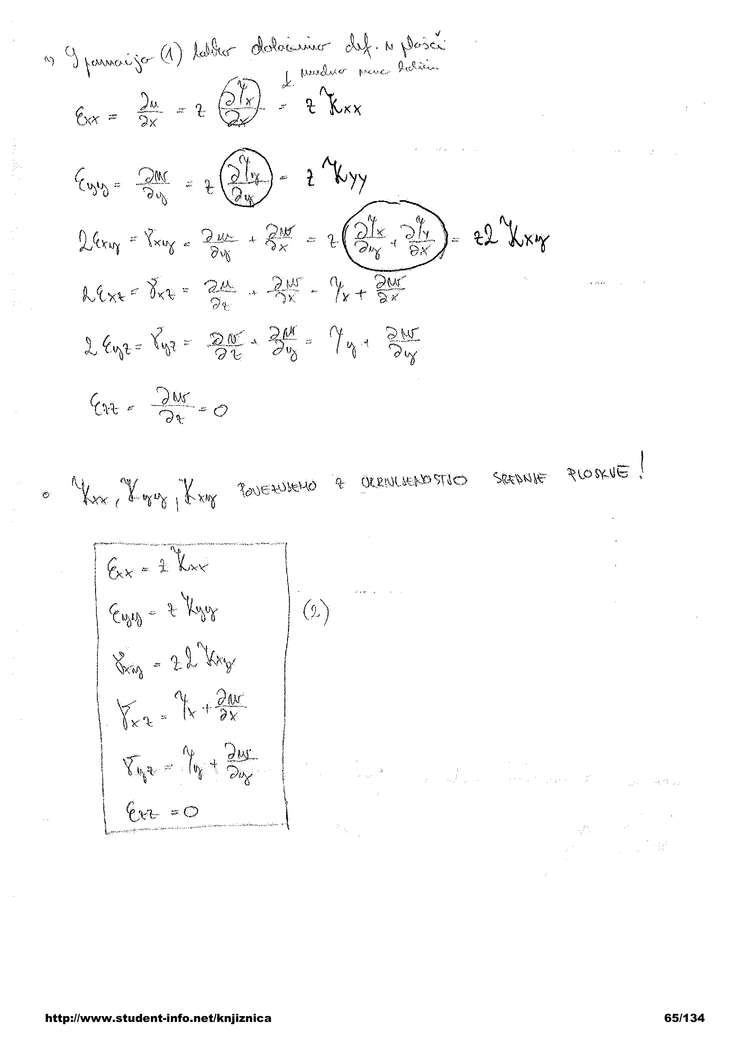 (1) lahko določimo def. v plošči
↓ uvedemo nove količine
εxx = ∂u/∂x = z ∂ψx/∂x = z κxx
εyy = ∂v/∂y = z ∂ψy/∂y = z κyy
2εxy = γxy = ∂u/∂y + ∂v/∂x = z (∂ψx/∂y + ∂ψy/∂x) = z2 κxy
2εxz = γxz = ∂u/∂z + ∂w/∂x = ψx + ∂w/∂x
2εyz = γyz = ∂v/∂z + ∂w/∂y = ψy + ∂w/∂y
εzz = ∂w/∂z = 0
κxx, κyy, κxy POVEZUJEMO Z UKRIVLJENOSTJO SREDNJE PLOSKVE!
εxx = z κxx
εyy = z κyy (2)
γxy = z2 κxy
γxz = ψx + ∂w/∂x
γyz = ψy + ∂w/∂y
εzz = 0
http://www.student-info.net/knjiznica 65/134